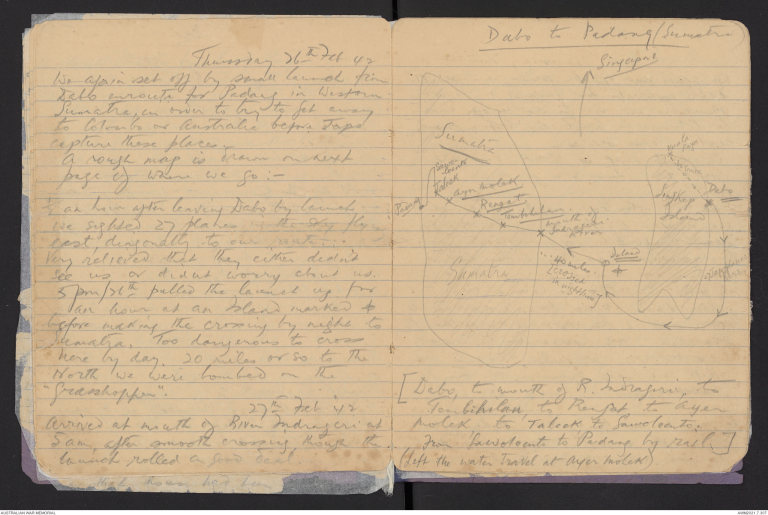 Thursday 26th Feb 42
We again set off by small launch from
Dabo enroute for Padang in Western
Sumatra, in order to try to get away
to Colombo or Australia before Japs
capture these places.
A rough map is drawn on next
page of where we go :-
½ an hour after leaving Dabo by launch
we sighted 27 planes in the sky flying
east, diagonally to our
Very relieved that they either didn't
see us or didnt worry about us.
5 pm/26th pulled the launch up for
an hour at an Island marked
before making the crossing by night to
Sumatra. Too dangerous to cross
here by day. 20 miles or so to the
North we were bombed on the
"Grasshopper".
27th Feb 42
Arrived at mouth of River Indragiri at
5am, after smooth crossing though the
launch rolled a good deal
Dabo to Padang/Sumatra
Singapore
Sumatra
Padang
Sawaloento
Taloek
Ayer Molek
Rengat
Tembilahan
Mouth
Indragiri
River
Island
40 miles
crossed
in night
Singkep
Island
Dabo
Sumatra
[Dabo, to mouth of R. Indragiri, to
Tembihilan, to Rengat to Ayer
Molek to Taloek to Sawoloento.
From Sawoloento to Padang by rail]
(Left the water travel at Ayer Molek)
AUSTRALIAN WAR MEMORIAL